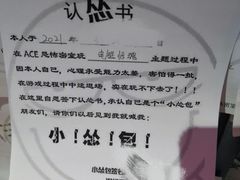 认怂书
本人于 2021 年
在 ACE 恐怖密室玩 主题过程中
因本人自己,心理承受能力太差,害怕得一批
在游戏过程中中途退场,实在玩不下去了!!!
在这里自愿签下认怂书,承认自己是个“小怂包”
朋友们,请你们以后见到我就喊我:
小!怂!包!
小怂包签